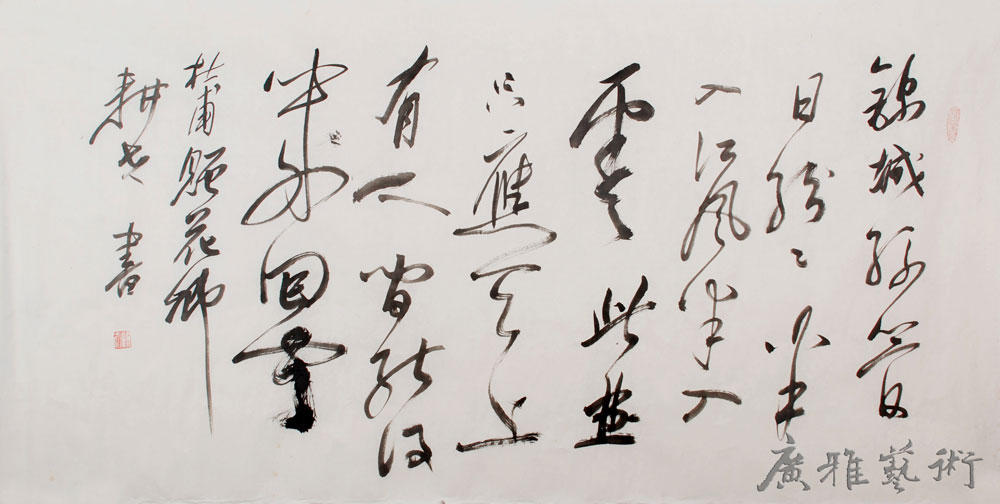 錦城絲管
日紛〻半
入江風半入
雲此曲
只應天上
有人間能得
幾回聞
杜甫贈花卿
耕 書
廣雅藝術